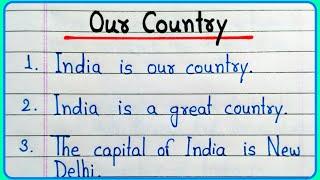 Our Country
1. India is our country.
2. India is a great country.
3. The capital of India is New
Delhi.